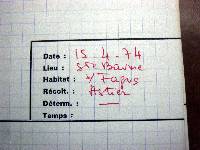 Date : 15-4-74
Lieu : Ste Baume
Habitat : s/ Fagus
Récolt. : Astier
Déterm. : —
Temps :